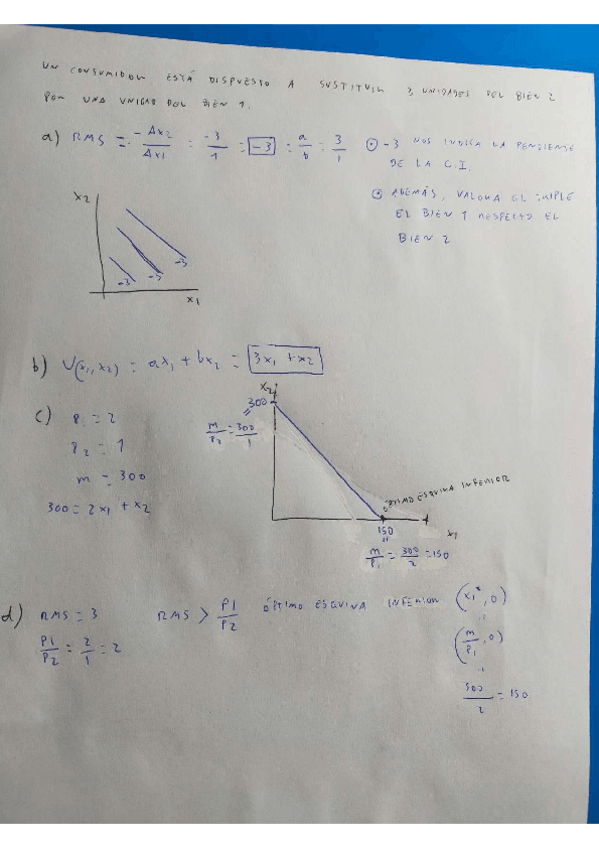 UN CONSUMIDOR ESTÁ DISPUESTO A SUSTITUIR 3 UNIDADES DEL BIEN 2
POR UNA UNIDAD DEL BIEN 1.
a) RMS = -Δx2/Δx1 = -3/1 = -3 = a/b = 3/1
-3 NOS INDICA LA PENDIENTE
DE LA C.I.
ADEMÁS, VALORA EL TRIPLE
EL BIEN 1 RESPECTO EL
BIEN 2
x2
-3 -3 -3
x1
b) U(x1, x2) = ax1 + bx2 = 3x1 + x2
c) P1 = 2
P2 = 1
m = 300
300 = 2x1 + x2
x2
300
m/P2 = 300/1
ÓPTIMO ESQUINA INFERIOR
150
x1
m/P1 = 300/2 = 150
d) RMS = 3 RMS > P1/P2 ÓPTIMO ESQUINA INFERIOR (x1*, 0)
P1/P2 = 2/1 = 2
(m/P1, 0)
300/2 = 150